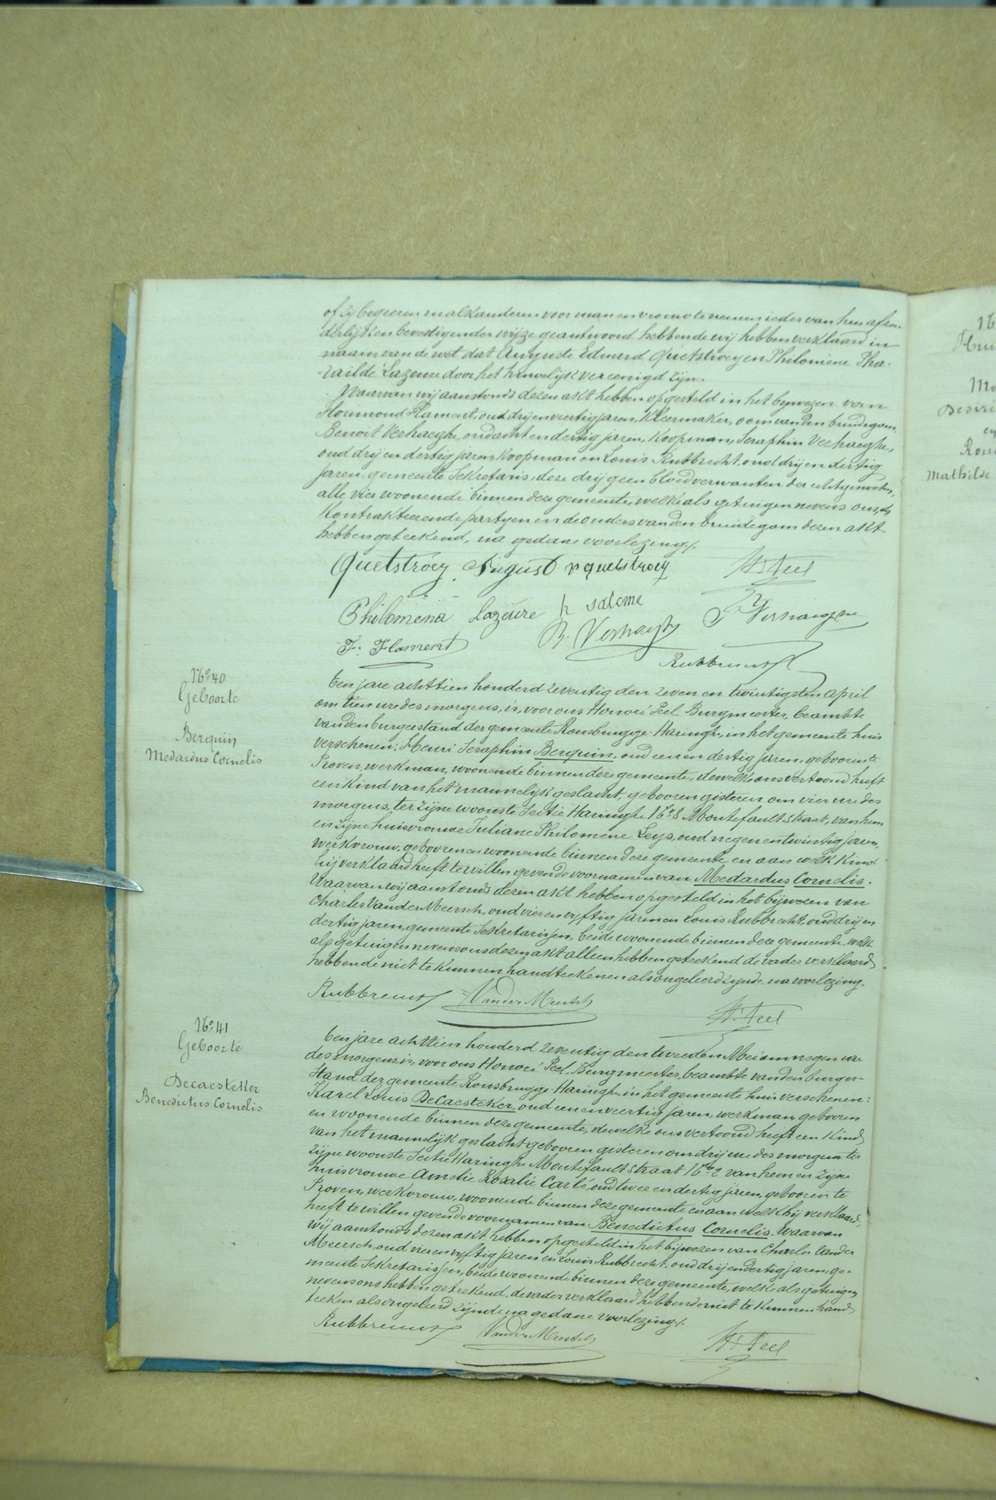 of zij begeeren malkanderen voor man en vrouw te nemen ieder van hen afzon-
derlijk een bevestigender wijze geantwoord hebbende, wij hebben verklaard in
naam van de wet dat Auguste Edmond Quetstroey en Philomène Pha-
raïlde Lazeure door het huwelijk vereenigd zijn.
Waarvan wij aanstonds dezen akt hebben opgesteld in het bijwezen van
Flamant, oud drij en veertig jaren, kleermaker, oom van den bruidegom,
Benoit Verhaeghe, oud acht en dertig jaren, koopman, Seraphin Verhaeghe,
oud drij en dertig jaren koopman en Louis Rubbrecht, oud drij en dertig
jaren gemeente Sekretaris, deze drij geen bloedverwanten der echtgenooten,
alle vier woonende binnen deze gemeente, welke als getuigen nevens ons, de
kontrakteerende partyen en de ouders van den bruidegom dezen akt
hebben geteekend, na gedane voorlezing.
Quetstroey August v quetstroey H. Peel
Philomena Lazeure h salome
F. Flament B. Verhaeghe S Verhaeghe
Rubbrecht
No 40
Geboorte
Berquin
Medardus Cornelis
Een jare achttien honderd zeventig den zeven en twintigsten april
om tien ure des morgens, is, voor ons Honoré Peel Burgmeester, beambte
van den burgerstand der gemeente Rousbrugge Haringhe, in het gemeente huis
verschenen: Henri Seraphin Berquin, oud een en dertig jaren, geboren te
Proven, werkman, woonende binnen deze gemeente, dewelke ons vertoond heeft
een kind van het mannelijk geslacht, geboren gisteren om vier ure des
morgens, ter zijne woonste Sectie Haringhe No 8 Montefaultstraat, van hem
en zijne huisvrouwe Juliane Philomene Leys, oud negen en twintig jaren,
werkvrouw, geboren en woonende binnen deze gemeente, en aan welk kind
hij verklaard heeft te willen geven de voornamen van Medardus Cornelis.
Waarvan wij aanstonds dezen akt hebben opgesteld in het bijwezen van
Charles Vander Meersch, oud vier en vyftig jaren en Louis Rubbrecht, oud drij en
dertig jaren, gemeente Sekretarissen, beide woonende binnen deze gemeente, welke
als getuigen nevens ons dezen akt alleen hebben geteekend de vader verklaard
hebbende niet te kunnen handteekenen als ongeleerd zijnde, na voorlezing.
Rubbrecht Vander Meersch H. Peel
No 41
Geboorte
Decaesteker
Benedictus Cornelis
Een jare achttien honderd zeventig den tweeden Mei om negen ure
des morgens is, voor ons Honoré Peel, Burgmeester, beambte van den burger-
stand der gemeente Rousbrugge Haringhe in het gemeente huis verschenen:
Karel Louis DeCaesteker, oud een en veertig jaren, werkman geboren
en woonende binnen deze gemeente, dewelke ons vertoond heeft een kind
van het mannelijk geslacht, geboren gisteren om drij ure des morgens ter
zijne woonste Sectie Haringhe Montefaultstraat No 2 van hem en zijne
huisvrouwe Amelie Rosalie Carlé, oud twee en dertig jaren, geboren te
Proven, werkvrouw, woonende binnen deze gemeente en aan welk hij verklaard
heeft te willen geven de voornamen van Benedictus Cornelis. Waarvan
wij aanstonds dezen akt hebben opgesteld in het bijwezen van Charles Vander
Meersch, oud vier en vyftig jaren en Louis Rubbrecht, oud drij en dertig jaren, ge-
meente Sekretarissen, beide woonende binnen deze gemeente, welke als getuigen
nevens ons hebben geteekend, de vader verklaard hebbende niet te kunnen hand-
teeken als ongeleerd zijnde na gedane voorlezing.
Rubbrecht Vander Meersch H. Peel
Mathilde